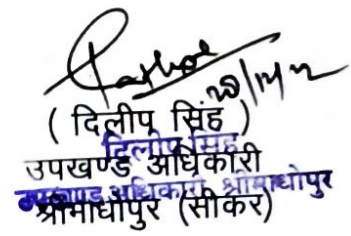 ( दिलीप सिंह )
दिलीप सिंह
उपखण्ड अधिकारी
उपखण्ड अधिकारी श्रीमाधोपुर
श्रीमाधोपुर (सीकर)